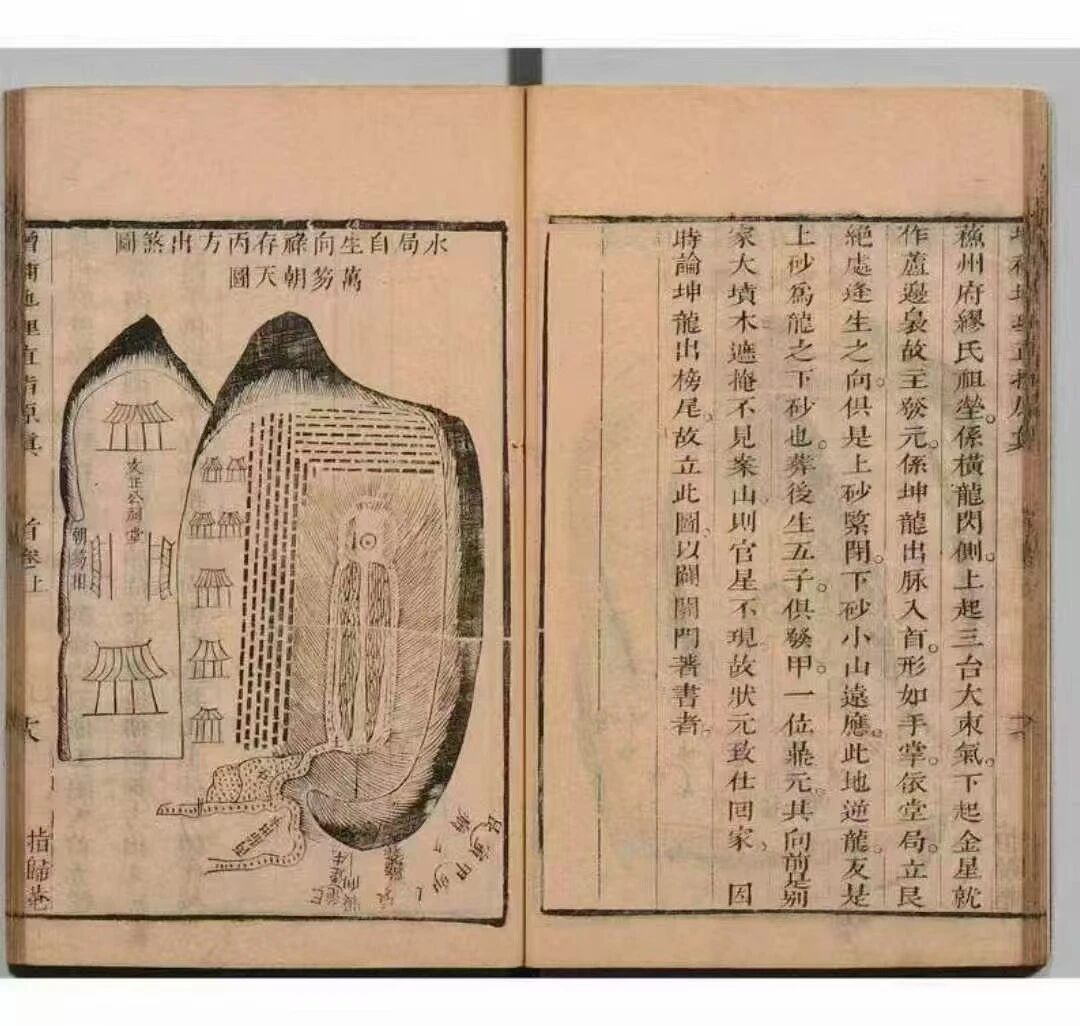 蘓州府繆氏祖塋。係橫龍閃側。上起三台大東氣。下起金星就
作蘆邊裊故主發元。係坤龍出脉入首。形如手掌。依堂局。立艮
絕處逢生之向。俱是上砂緊閉。下砂小山遠應。此地逆龍友是
上砂爲龍之下砂也。葬後生五子。俱發甲。一位鼎元。其向前是别
家大墳木遮掩不見案山。則官星不現。故狀元致仕回家、因
時論坤龍出榜尾。故立此圖、以闢門著書者。
水局自生向祿存丙方出煞圖
萬笏朝天圖
文正公祠堂
朝笏相
增補地理直指原真 首卷上 指歸菴